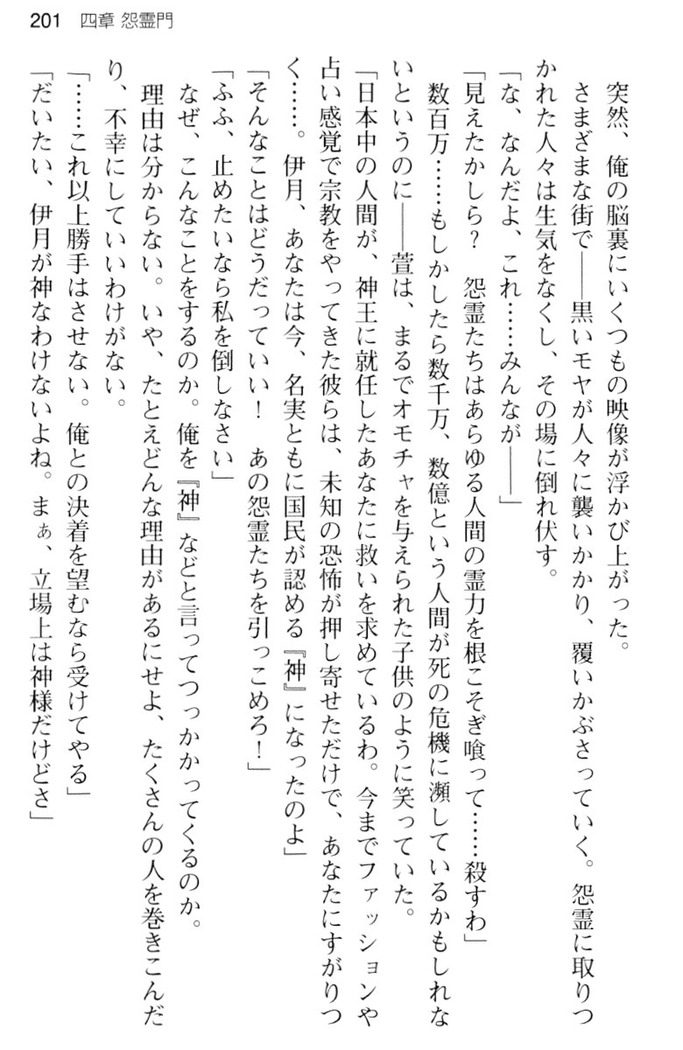 201 四章 怨霊門
突然、俺の脳裏にいくつもの映像が浮かび上がった。
さまざまな街で――黒いモヤが人々に襲いかかり、覆いかぶさっていく。怨霊に取りつ
かれた人々は生気をなくし、その場に倒れ伏す。
「な、なんだよ、これ……みんなが――」
「見えたかしら？　怨霊たちはあらゆる人間の霊力を根こそぎ喰って……殺すわ」
数百万……もしかしたら数千万、数億という人間が死の危機に瀕しているかもしれな
いというのに――萱は、まるでオモチャを与えられた子供のように笑っていた。
「日本中の人間が、神王に就任したあなたに救いを求めているわ。今までファッションや
占い感覚で宗教をやってきた彼らは、未知の恐怖が押し寄せただけで、あなたにすがりつ
く……。伊月、あなたは今、名実ともに国民が認める『神』になったのよ」
「そんなことはどうだっていい！　あの怨霊たちを引っこめろ！」
「ふふ、止めたいなら私を倒しなさい」
なぜ、こんなことをするのか。俺を『神』などと言ってつっかかってくるのか。
理由は分からない。いや、たとえどんな理由があるにせよ、たくさんの人を巻きこんだ
り、不幸にしていいわけがない。
「……これ以上勝手はさせない。俺との決着を望むなら受けてやる」
「だいたい、伊月が神なわけないよね。まぁ、立場上は神様だけどさ」